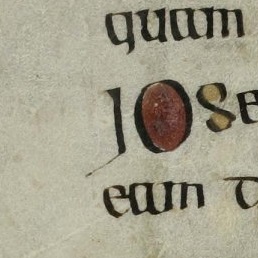 quam
Iose
eam d